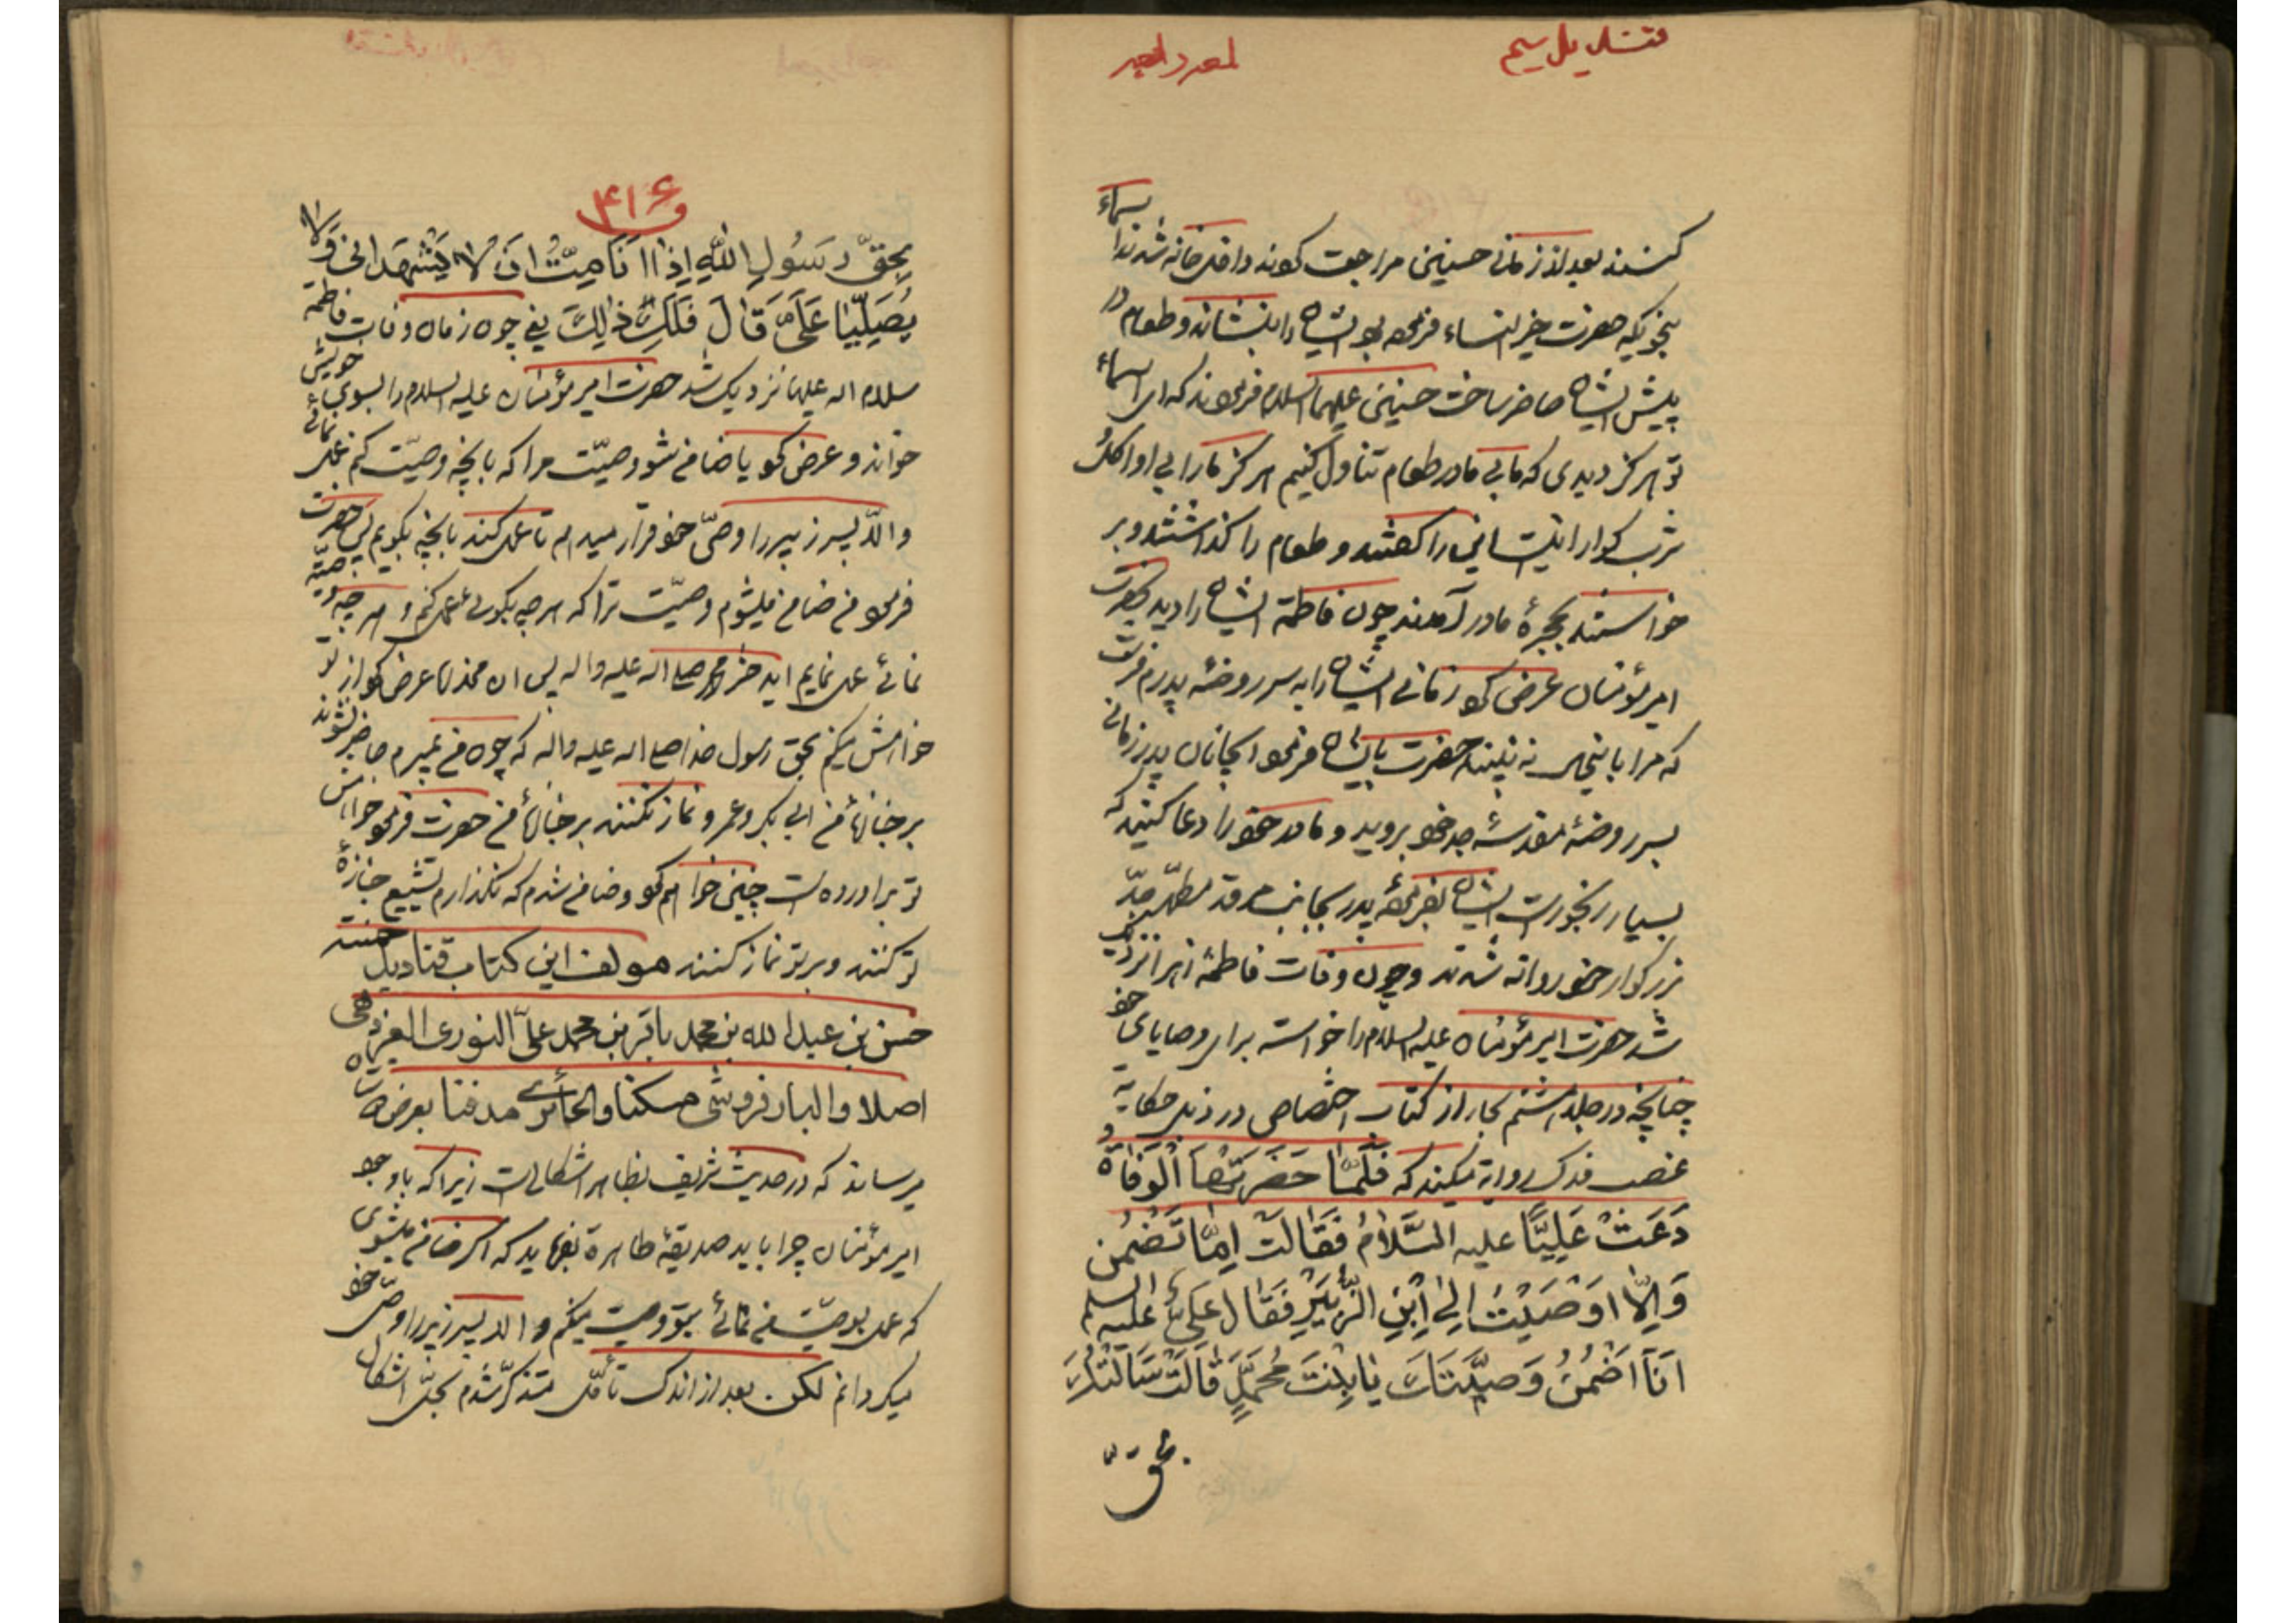 قندیل سیم
کنند بعد از زمانی حسنین مراجعت کوند داخل خانه شدند اسماء
بنحویکه حضرت خیر النساء فرموده بود ایشان را بنشاند و طعام در
پیش ایشان حاضر ساخت حسنین علیهما السلام فرمودند که ای اسماء
تو هرکز دیدی که ما بی مادر طعام تناول کنیم هرکز ما را بی او اکل و
شرب کوارا نیست این را کفتند و طعام را کذاشتند و بر
خواستند بحجرهٔ مادر آمدند چون فاطمة ایشان را دید بحضرت
امیر مؤمنان عرض کو زمانی ایشان را به سر روضهٔ پدرم فرست
که مرا باینحال نه بینند حضرت بایشان فرمود ایجانان پدر زمانی
بسر روضهٔ مقدسهٔ جد خو بروید و مادر خو را دعا کنید که
بسیار رنجورست ایشان بفرمودهٔ پدر بجانب مرقد مطهر جدّ
بزرکوار خو روانه شدند و چون وفات فاطمهٔ زهرا نزدیک
شد حضرت امیر مؤمنان علیه السلام را خواست برای وصایای خو
چنانچه در جلد هشتم بحار از کتاب اختصاص در ذیل حکایة
غصب فدک روایة میکند که فَلَمَّا حَضَرَتْهَا الْوَفَاةُ
دَعَتْ عَلِیًّا علیه السَّلَامُ فَقَالَت اِمَّا تَضْمَن
وَاِلَّا اَوْصَیْتُ اِلَی اِبْنِ الزُّبَیْرِ فَقَالَ عَلِیٌّ علیه السلم
اَنَا اَضْمَنُ وَصِیَّتَکَ یَا بِنْتَ مُحَمَّدٍ قَالَتْ سَاَلْتُکَ
بحقّ
۴۱۶
بِحَقِّ رَسُولِ اللّهِ اِذَا اَنَا مِتُّ اَنْ لَا یَشْهَدَانِی وَلَا
یُصَلِّیَا عَلَیَّ قَالَ فَلَکِ ذَالِکَ یعنی چون زمان وفات فاطمه
سلام اله علیها نزدیک شد حضرت امیر مؤمنان علیه السلام را بسوی خویش
خواند و عرض کو یا ضامن شو وصیّت مرا که بانچه وصیّت کنم عمل نمائی
والّا پسر زبیر را وصیّ خو قرار میدهم تا عمل کند بانچه بکویم پس حضرت
فرمو من ضامن میشوم وصیّت ترا که هر چه بکوئی عمل کنم و هر چه وصیّة
نمائی عمل نمایم ایدختر محمد صلی اله علیه واله پس ان مخدره عرض کو از تو
خواهش میکنم بحق رسول خدا صلی اله علیه واله که چون من بمیرم حاضر نشوند
بر جنازهٔ من ابی بکر و عمر و نماز نکنند بر جنازهٔ من حضرت فرمو خواهش
تو براورده است چنین خواهم کو و ضامن شدم که نکذارم تشییع جنازهٔ
تو کنند و بر تو نماز کنند مولف این کتاب قنادیل
حسن بن عبد الله بن محمد باقر بن محمد علیّ النوری
اصلا و البارفروشی مسکنا والحائری مدفنا بعرض
میرساند که در حدیث شریف بظاهر اشکالی است زیرا که با وجو
امیر مؤمنان چرا باید صدیقهٔ طاهرة بفرماید که اکر ضامن میشوی
که عمل بوصیّت من نمائی بتو وصیت میکنم والّا پسر زبیر را وصیّ خو
میکردانم لکن بعد از اندک تأمّل متذکّر شدم بحلّ اشکال